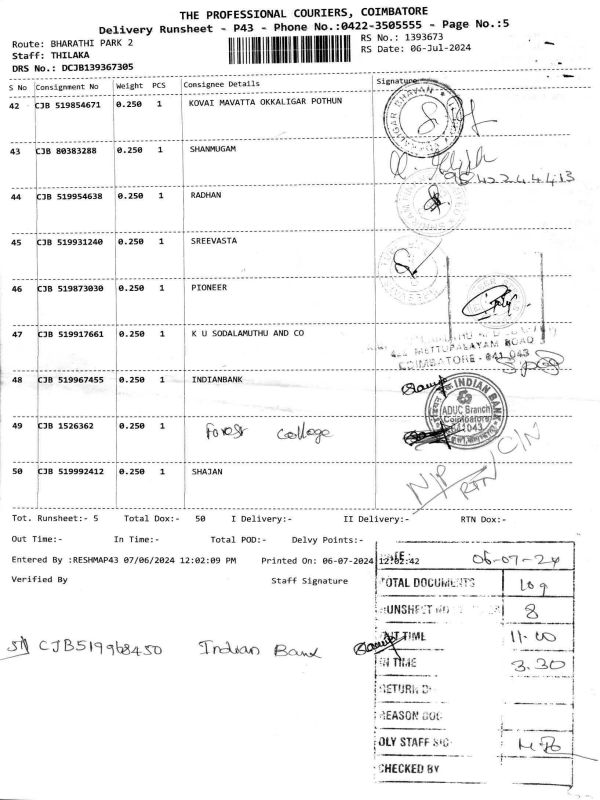 THE PROFESSIONAL COURIERS, COIMBATORE
Delivery Runsheet - P43 - Phone No.:0422-3505555 - Page No.:5
Route: BHARATHI PARK 2
RS No.: 1393673
Staff: THILAKA
RS Date: 06-Jul-2024
DRS No.: DCJB139367305
S No Consignment No Weight PCS Consignee Details Signature
42 CJB 519854671 0.250 1 KOVAI MAVATTA OKKALIGAR POTHUN
43 CJB 80383288 0.250 1 SHANMUGAM
44 CJB 519954638 0.250 1 RADHAN
45 CJB 519931240 0.250 1 SREEVASTA
46 CJB 519873030 0.250 1 PIONEER
47 CJB 519917661 0.250 1 K U SODALAMUTHU AND CO
METTUPALAYAM ROAD
COIMBATORE - 641 043
48 CJB 519967455 0.250 1 INDIANBANK
INDIAN BANK
ADUC Branch
Coimbatore
641043
49 CJB 1526362 0.250 1 Forest College
50 CJB 519992412 0.250 1 SHAJAN
N/P C/N
RTN
Tot. Runsheet:- 5 Total Dox:- 50 I Delivery:- II Delivery:- RTN Dox:-
Out Time:- In Time:- Total POD:- Delvy Points:-
Entered By :RESHMAP43 07/06/2024 12:02:09 PM Printed On: 06-07-2024 12:02:42
Verified By Staff Signature
DATE: 06-07-24
TOTAL DOCUMENTS 109
RUNSHEET NO 8
OUT TIME 11.00
IN TIME 3.30
RETURN D
REASON DOC
DLY STAFF SIG
CHECKED BY
51 CJB519968450 Indian Bank